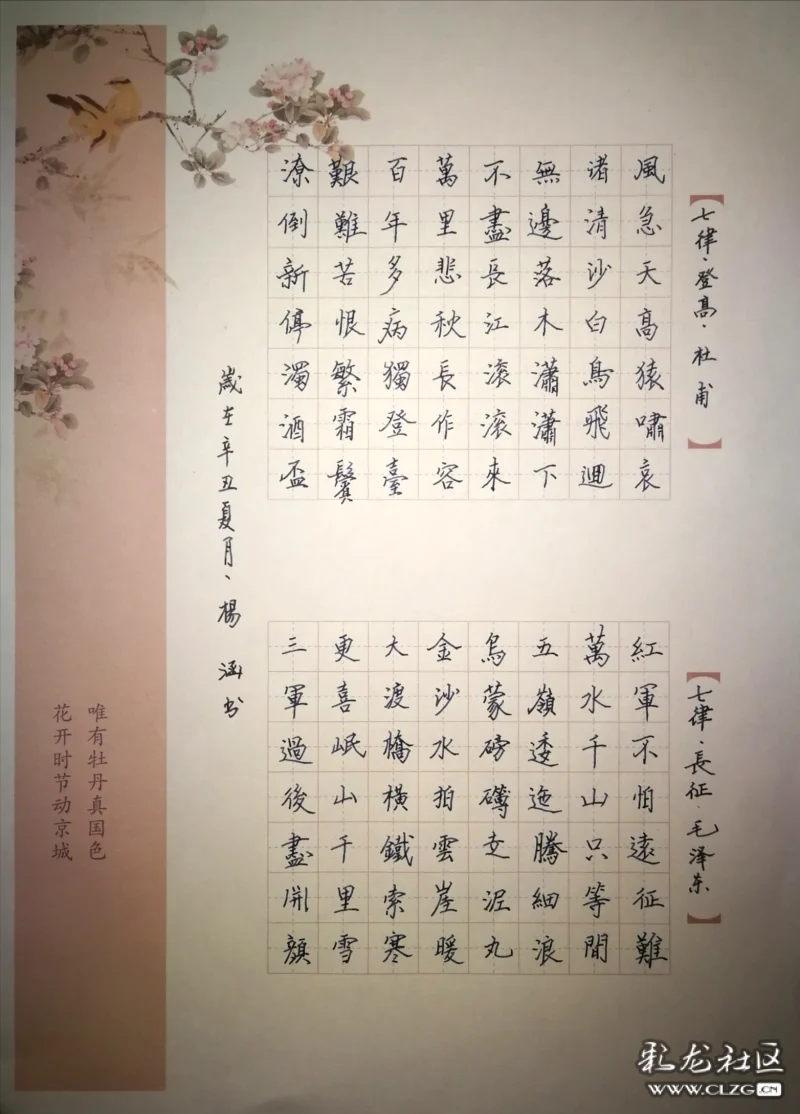 【七律·登高·杜甫】
風急天高猿嘯哀
渚清沙白鳥飛迴
無邊落木瀟瀟下
不盡長江滚滚來
萬里悲秋長作客
百年多病獨登臺
艱難苦恨繁霜鬢
潦倒新停濁酒盃
【七律·長征·毛泽东】
紅軍不怕遠征難
萬水千山只等間
五嶺逶迤騰細浪
烏蒙磅礴走泥丸
金沙水拍雲崖暖
大渡橋橫鐵索寒
更喜岷山千里雪
三軍過後盡開顏
歲在辛丑夏月、楊涵书
唯有牡丹真国色
花开时节动京城
彩龙社区
WWW.CLZG.CN